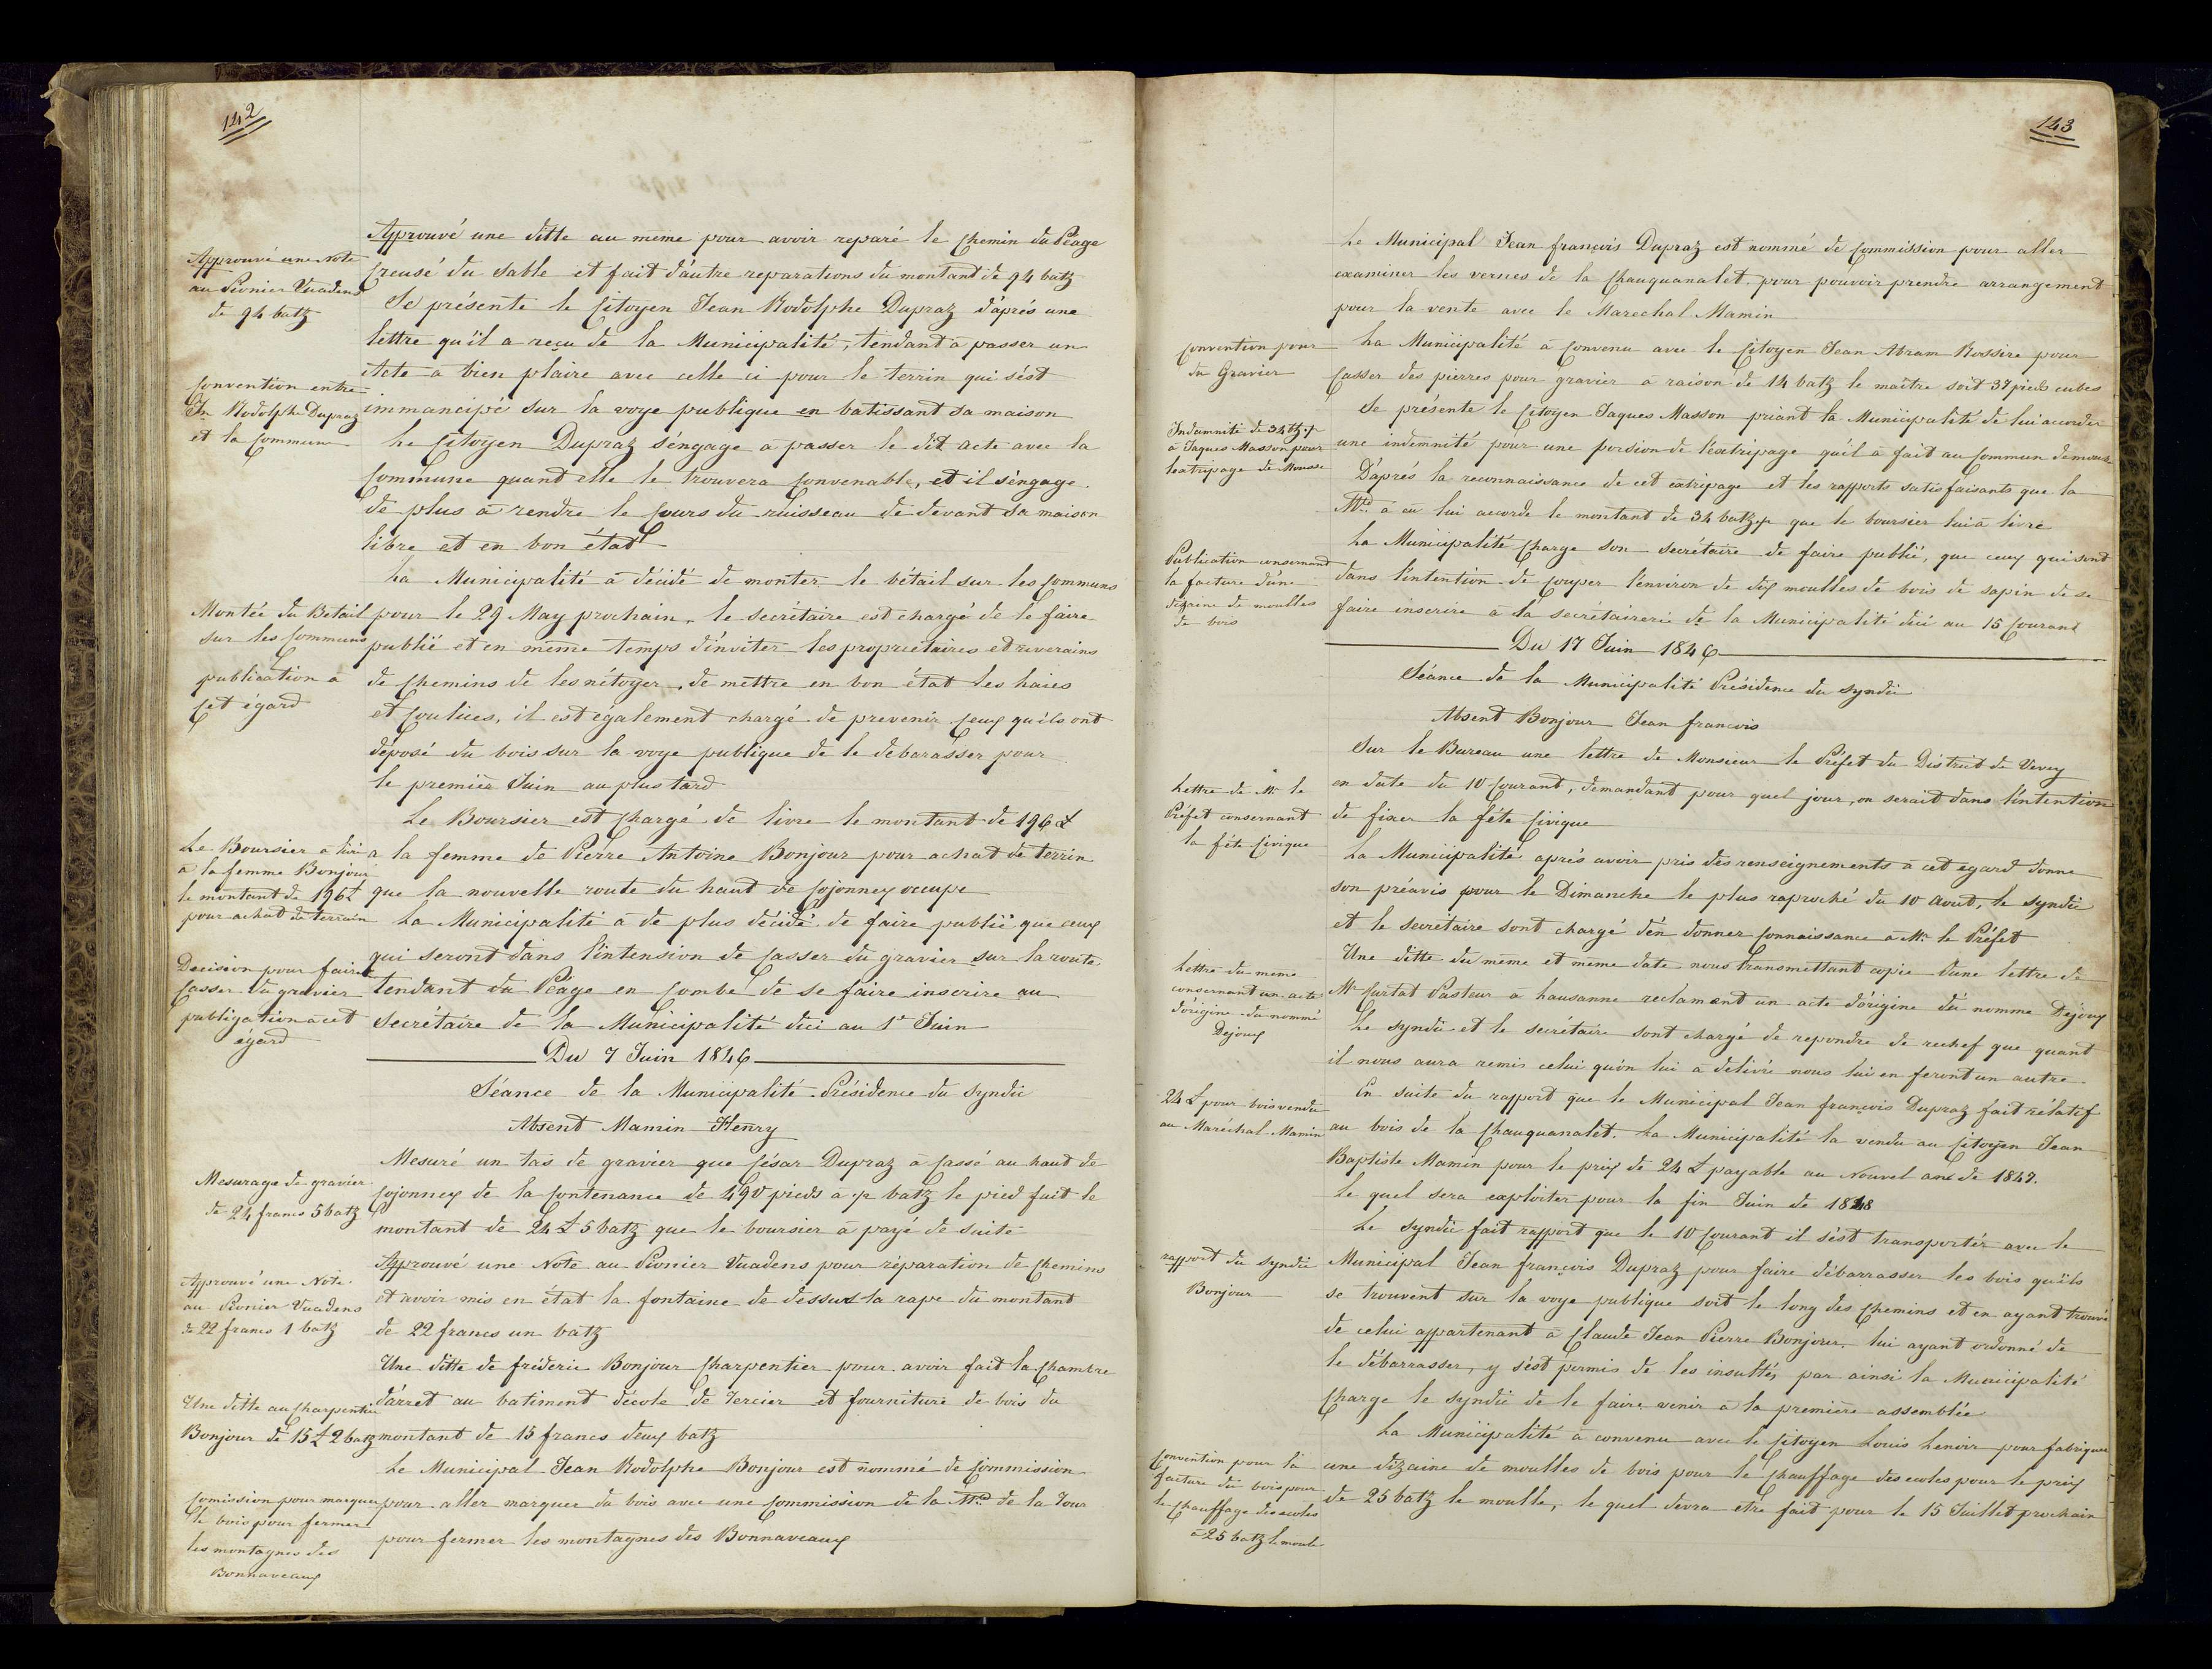 142
Approuvé une Note
au Pionier Vuadens
de 94 batz
Convention entre
Jn Rodolphe Dupraz
et la Commune
Montée du Betail
sur les Communs
publication à
cet égard
Le Boursier a livré
à la femme Bonjour
le montant de 196 £
pour achat de terrain
Decision pour faire
casser du gravier
publication a cet
egard
Mesurage de gravier
de 24 francs 5 batz
Approuvé une Note
au Pionier Vuadens
de 22 francs 1 batz
Une ditte au Charpentier
Bonjour de 15 £ 2 batz
Comission pour marquer
le bois pour fermer
les montagnes des
Bonnaveaux
Approuvé une ditte au même pour avoir reparé le Chemin du Péage
Creusé du Sable et fait d'autre reparations du montant de 94 batz
Se présente le Citoyen Jean Rodolphe Dupraz d'aprés une
lettre qu'il a reçu de la Municipalité, tendant à passer un
Acte à bien plaire avec celle ci pour le terrin qui s'ést
immancipé sur la voye publique en batissant sa maison
Le Citoyen Dupraz s'éngage à passer le dit acte avec la
Commune quand elle le trouvera Convenable, et il s'éngage
de plus à rendre le Cours du ruisseau de devant sa maison
libre et en bon état
La Municipalité à décidé de monter le bétail sur les Communs
pour le 29 May prochain, le secrétaire est chargé de le faire
publié et en même temps d'inviter les propriétaires et riverains
de Chemins de les nétoyer, de mettre en bon état les haies
et Coulices, il est également chargé de prevenir Ceux qu'ils ont
déposé du bois sur la voye publique de le debarasser pour
le premier Juin au plus tard
Le Boursier est Chargé de livre le montant de 196 £
a la femme de Pierre Antoine Bonjour pour achat de terrin
que la nouvelle route du haut de Cojonney occupe
La Municipalité à de plus décidé de faire publié que ceux
qui seront dans l'intension de Casser du gravier sur la route
tendant du Péage en Combe de se faire inscrire au
Secrétaire de la Municipalité d'ici au 1er Juin
Du 7 Juin 1846
Séance de la Municipalité Présidence du Syndic
Absent Mamin Henry
Mesuré un tas de gravier que César Dupraz à Cassé au haut de
Cojonney de la Contenance de 490 pieds à ½ batz le pied fait le
montant de 24 £ 5 batz que le boursier à payé de suite
Approuvé une Note au Pionier Vuadens pour réparation de Chemins
et avoir mis en état la fontaine de dessus la rape du montant
de 22 francs un batz
Une ditte de fréderic Bonjour Charpentier pour avoir fait la Chambre
d'arret au batiment d'école de Tercier et fourniture de bois du
montant de 15 francs deux batz
Le Municipal Jean Rodolphe Bonjour est nommé de Commission
pour aller marquer du bois avec une Commission de la Mté de la Tour
pour fermer les montagnes des Bonnaveaux
143
Convention pour
du Gravier
Indamnité de 34 btz ½
à Jaques Masson pour
l'extripage de Mousse
Publication consernand
la facture d'une
dizaine de moulles
de bois
Lettre de Mr le
Préfet consernant
la fête Civique
Lettre du meme
consernant un acte
d'origine du nommé
Dejoux
24 £ pour bois vendu
au Maréchal Mamin
rapport du Syndic
Bonjour
Convention pour la
facture du bois pour
le Chauffage des ecoles
à 25 batz le moule
Le Municipal Jean françois Dupraz est nommé de Commission pour aller
examiner les vernes de la Chauquanalet pour pouvoir prendre arrangement
pour la vente avec le Marechal Mamin
La Municipalité à Convenu avec le Citoyen Jean Abram Rossire pour
Casser des pierres pour gravier à raison de 14 batz le maître soit 37 pieds cubes
Se présente le Citoyen Jaques Masson priant la Municipalité de lui accorder
une indemnité pour une porsion de l'extripage qu'il à fait au Commun
D'aprés la reconnaissance de cet extripage et les rapports satisfaisants que la
Mté à eu lui accorde le montant de 34 batz ½ que le boursier lui à livré
La Municipalité Charge son secrétaire de faire publié, que ceux qui sont
dans l'intention de Couper l'environ de dix moulles de bois de sapin de se
faire inscrire à la secrétairerie de la Municipalité d'ici au 15 Courant
Du 17 Juin 1846
Séance de la Municipalité Présidence du Syndic
Absent Bonjour Jean francois
Sur le Bureau une lettre de Monsieur le Préfet du District de Vevey
en date du 10 Courant, demandant pour quel jour, on serait dans l'intention
de fixer la féte Civique
La Municipalité aprés avoir pris des renseignements à cet egard donne
son préavis pour le Dimanche le plus raproché du 10 Aout, le Syndic
et le secrétaire sont chargé d'en donner Connaissance à Mr le Préfet
Une ditte du même et même date nous transmettant copie d'une lettre de
Mr Curtat Pasteur à Lausanne reclamant un acte d'origine du nomme Dejoux
Le Syndic et le secrétaire sont chargé de repondre de rechef que quant
il nous aura remis celui qu'on lui à délivré nous lui en feront un autre
En suite du rapport que le Municipal Jean francois Dupraz fait rélatif
au bois de la Chauquanalet. La Municipalité la vendu au Citoyen Jean
Baptiste Mamin pour le prix de 24 £ payable au Nouvel ane de 1847.
Le quel sera exploiter pour la fin Juin de 1848
Le Syndic fait rapport que le 10 Courant il s'ést transportér avec le
Municipal Jean françois Dupraz pour faire débarrasser les bois qu'ils
se trouvent sur la voye publique soit le long des Chemins et en ayant trouvé
de celui appartenant à Claude Jean Pierre Bonjour, lui ayant ordonné de
le débarrasser, y s'ést permis de les insultés par ainsi la Municipalité
Charge le Syndic de le faire venir à la premiere assemblée
La Municipalité à convenu avec le Citoyen Louis Lenoir pour fabriquer
une dizaine de moulles de bois pour le chauffage des ecoles pour le prix
de 25 batz le moulle, le quel devra etre fait pour le 15 Juillet prochain